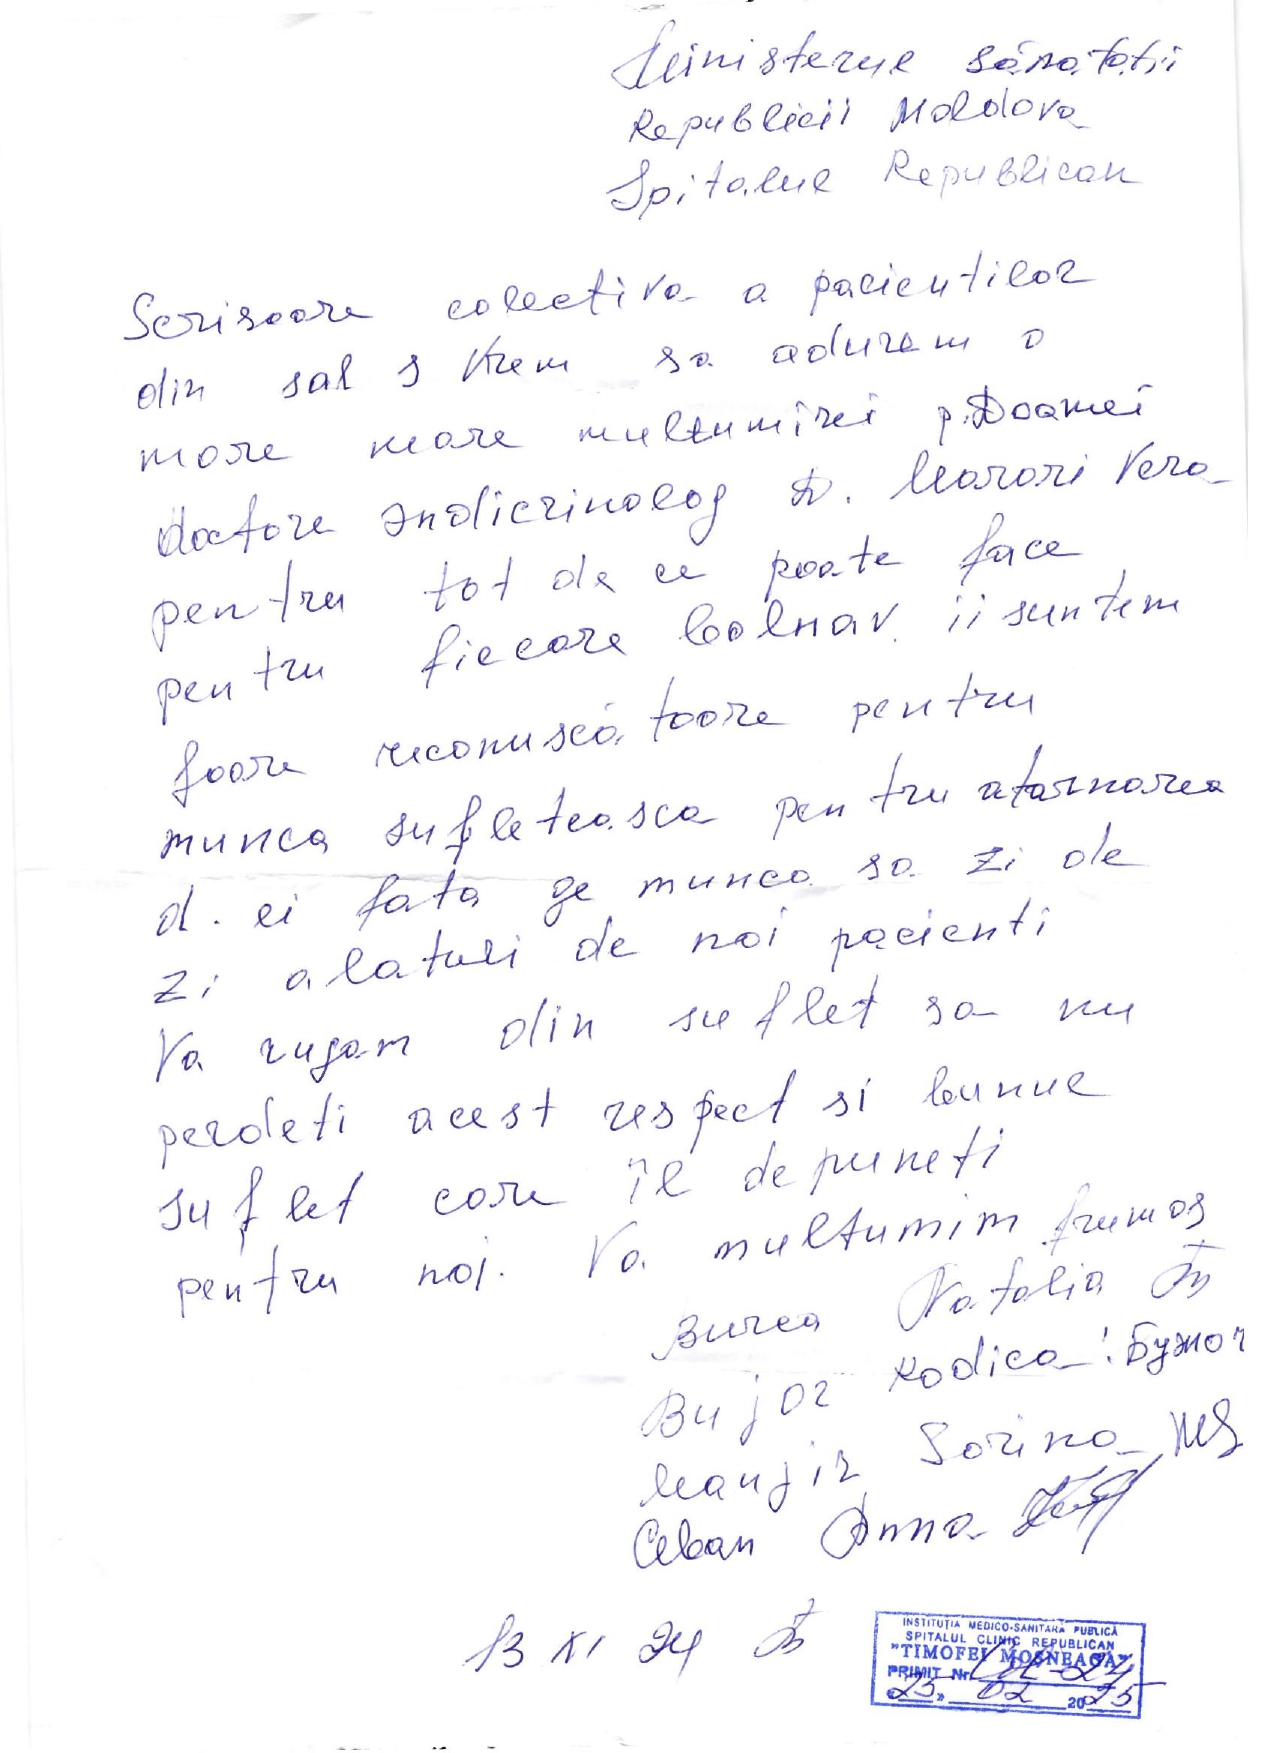 Ministerul sănatatii
Republicii Moldova
Spitalul Republican
Scrisoare colectiva a pacientilor
din sal 9 Vrem sa aducem o
mare mare multumiri p. Doamei
doctore Endicrinolog D. Marari Vera
pentru tot de ce poate face
pentru fiecare bolnav. ii suntem
foare reconuscătoare pentru
munca sufleteasca pentru atarnarea
d. ei fata ge munca sa zi de
zi alaturi de noi pacienti
Va rugam din suflet sa nu
perdeti acest respect si bunul
suflet care îl depuneti
pentru noi. Va multumim frumos
Burca Natalia
Bujor Rodica Бужор
Manjir Sorina
Ceban Anna
13 XI 24
INSTITUŢIA MEDICO-SANITARĂ PUBLICĂ
SPITALUL CLINIC REPUBLICAN
"TIMOFEI MOŞNEAGA"
PRIMIT Nr.
«25» 02 2025